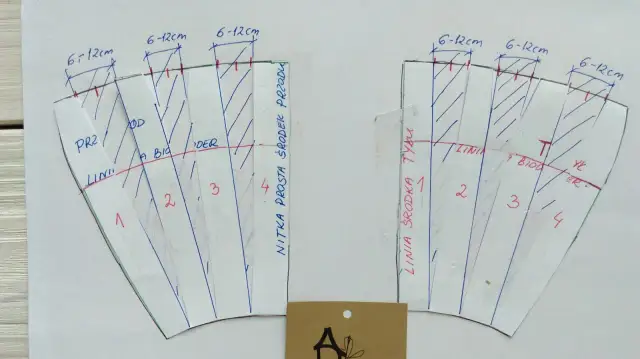 6-12cm
6-12cm
6-12cm
PRZ OD
LINIA BIODER
1
2
3
4
NITKA PROSTA ŚRODEK PRZODU
6-12cm
6-12cm
6-12cm
T YŁ
LINIA BIODER
LINIA ŚRODKA TYŁU
1
2
3
4